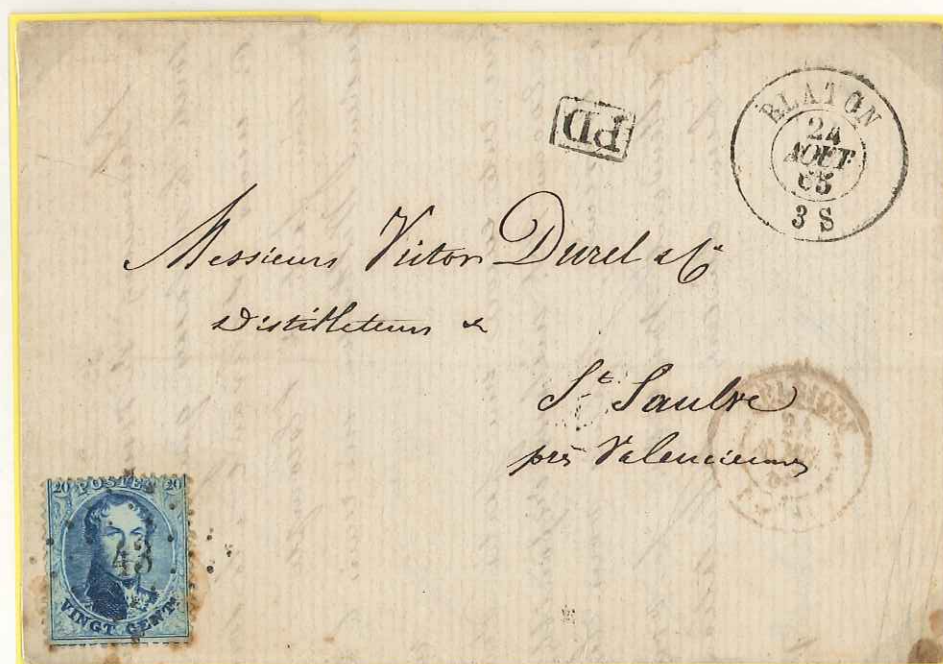 PD
BLATON
24
AOUT
65
3 S
Messieurs Victor Durel & Cie
Distillateurs &
St. Saulve
près Valenciennes
20 POSTES 20
43
VINGT CENTS